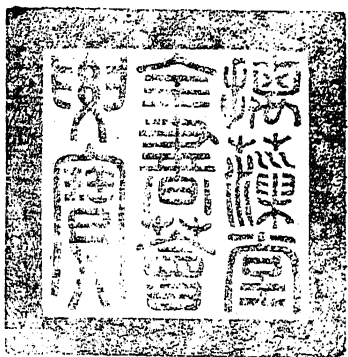 摛藻堂
全書薈
要寶